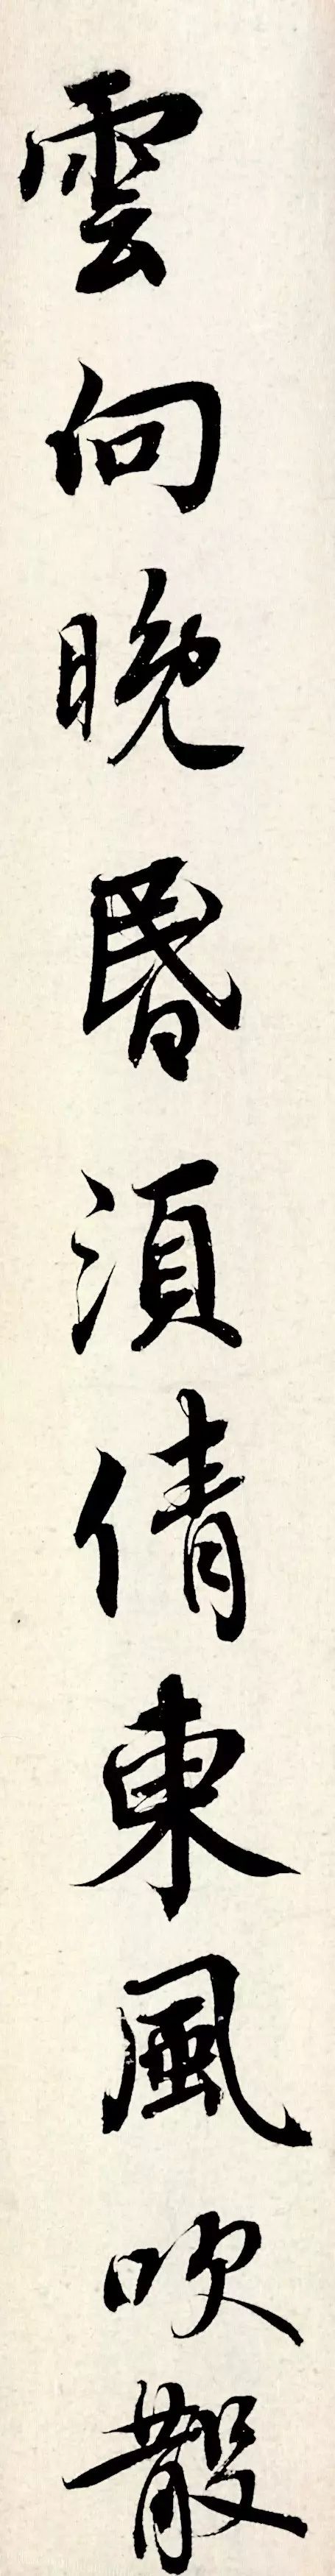 雲向晚昏須倩東風吹散